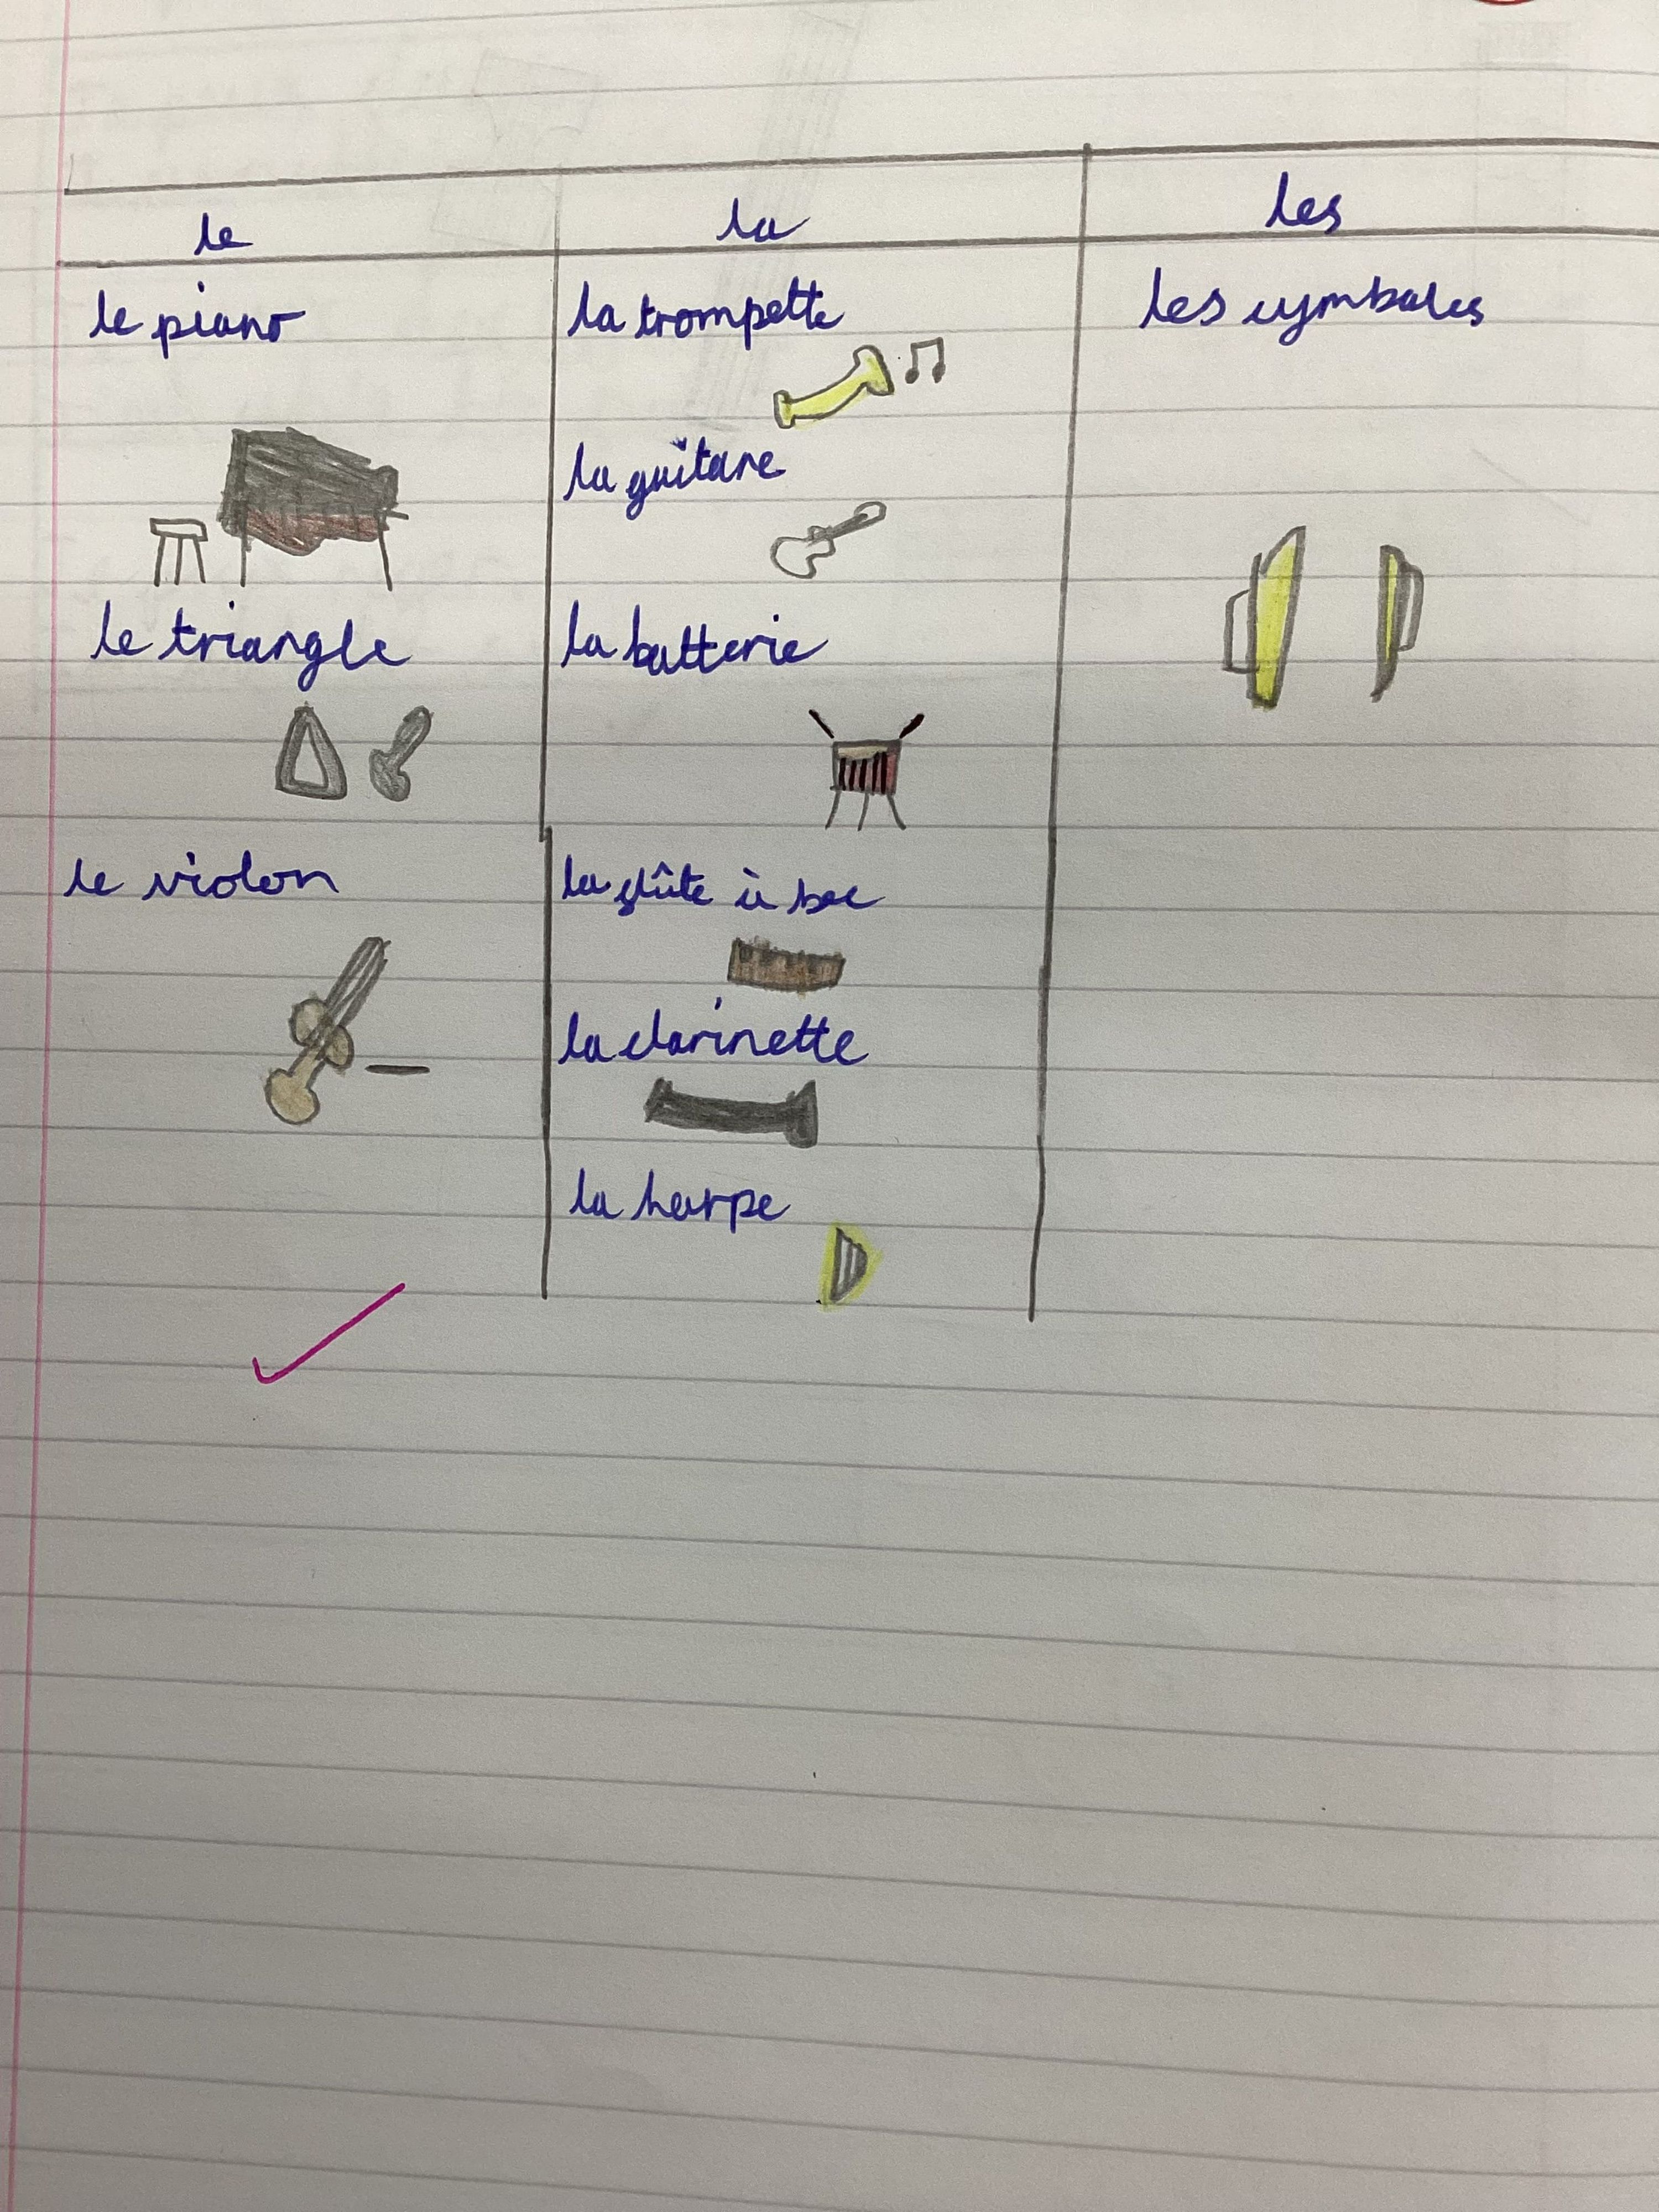 le
la
les
le piano
le triangle
le violon
la trompette
la guitare
la batterie
la flûte à bec
la clarinette
la harpe
les cymbales